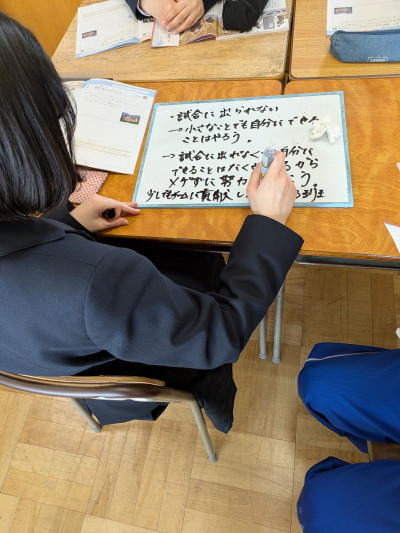 ・試合に出られない
→小さなことでも自分にできる
ことはやろう。
→試合に出れなくても自分に
できることはたくさんあるから
メゲずに努力しよう。
少しでもチームに貢献し